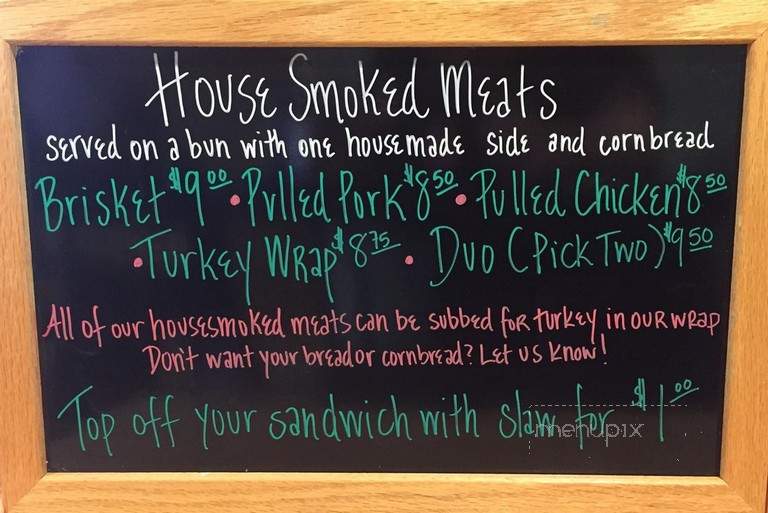 House Smoked Meats
served on a bun with one housemade side and cornbread
Brisket $9.00 • Pulled Pork $8.50 • Pulled Chicken $8.50
• Turkey Wrap $8.75 • Duo (Pick Two) $9.50
All of our housesmoked meats can be subbed for turkey in our wrap
Don't want your bread or cornbread? Let us know!
Top off your sandwich with slaw for $1.00
menupix